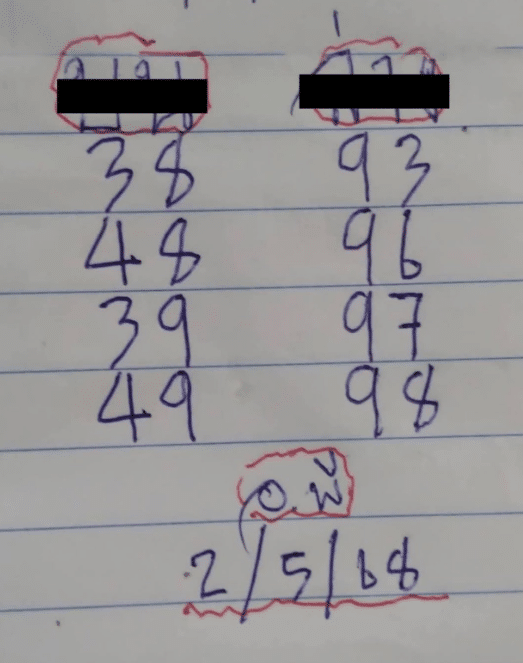 38 93
48 96
39 97
49 98
อ.พี
2/5/68